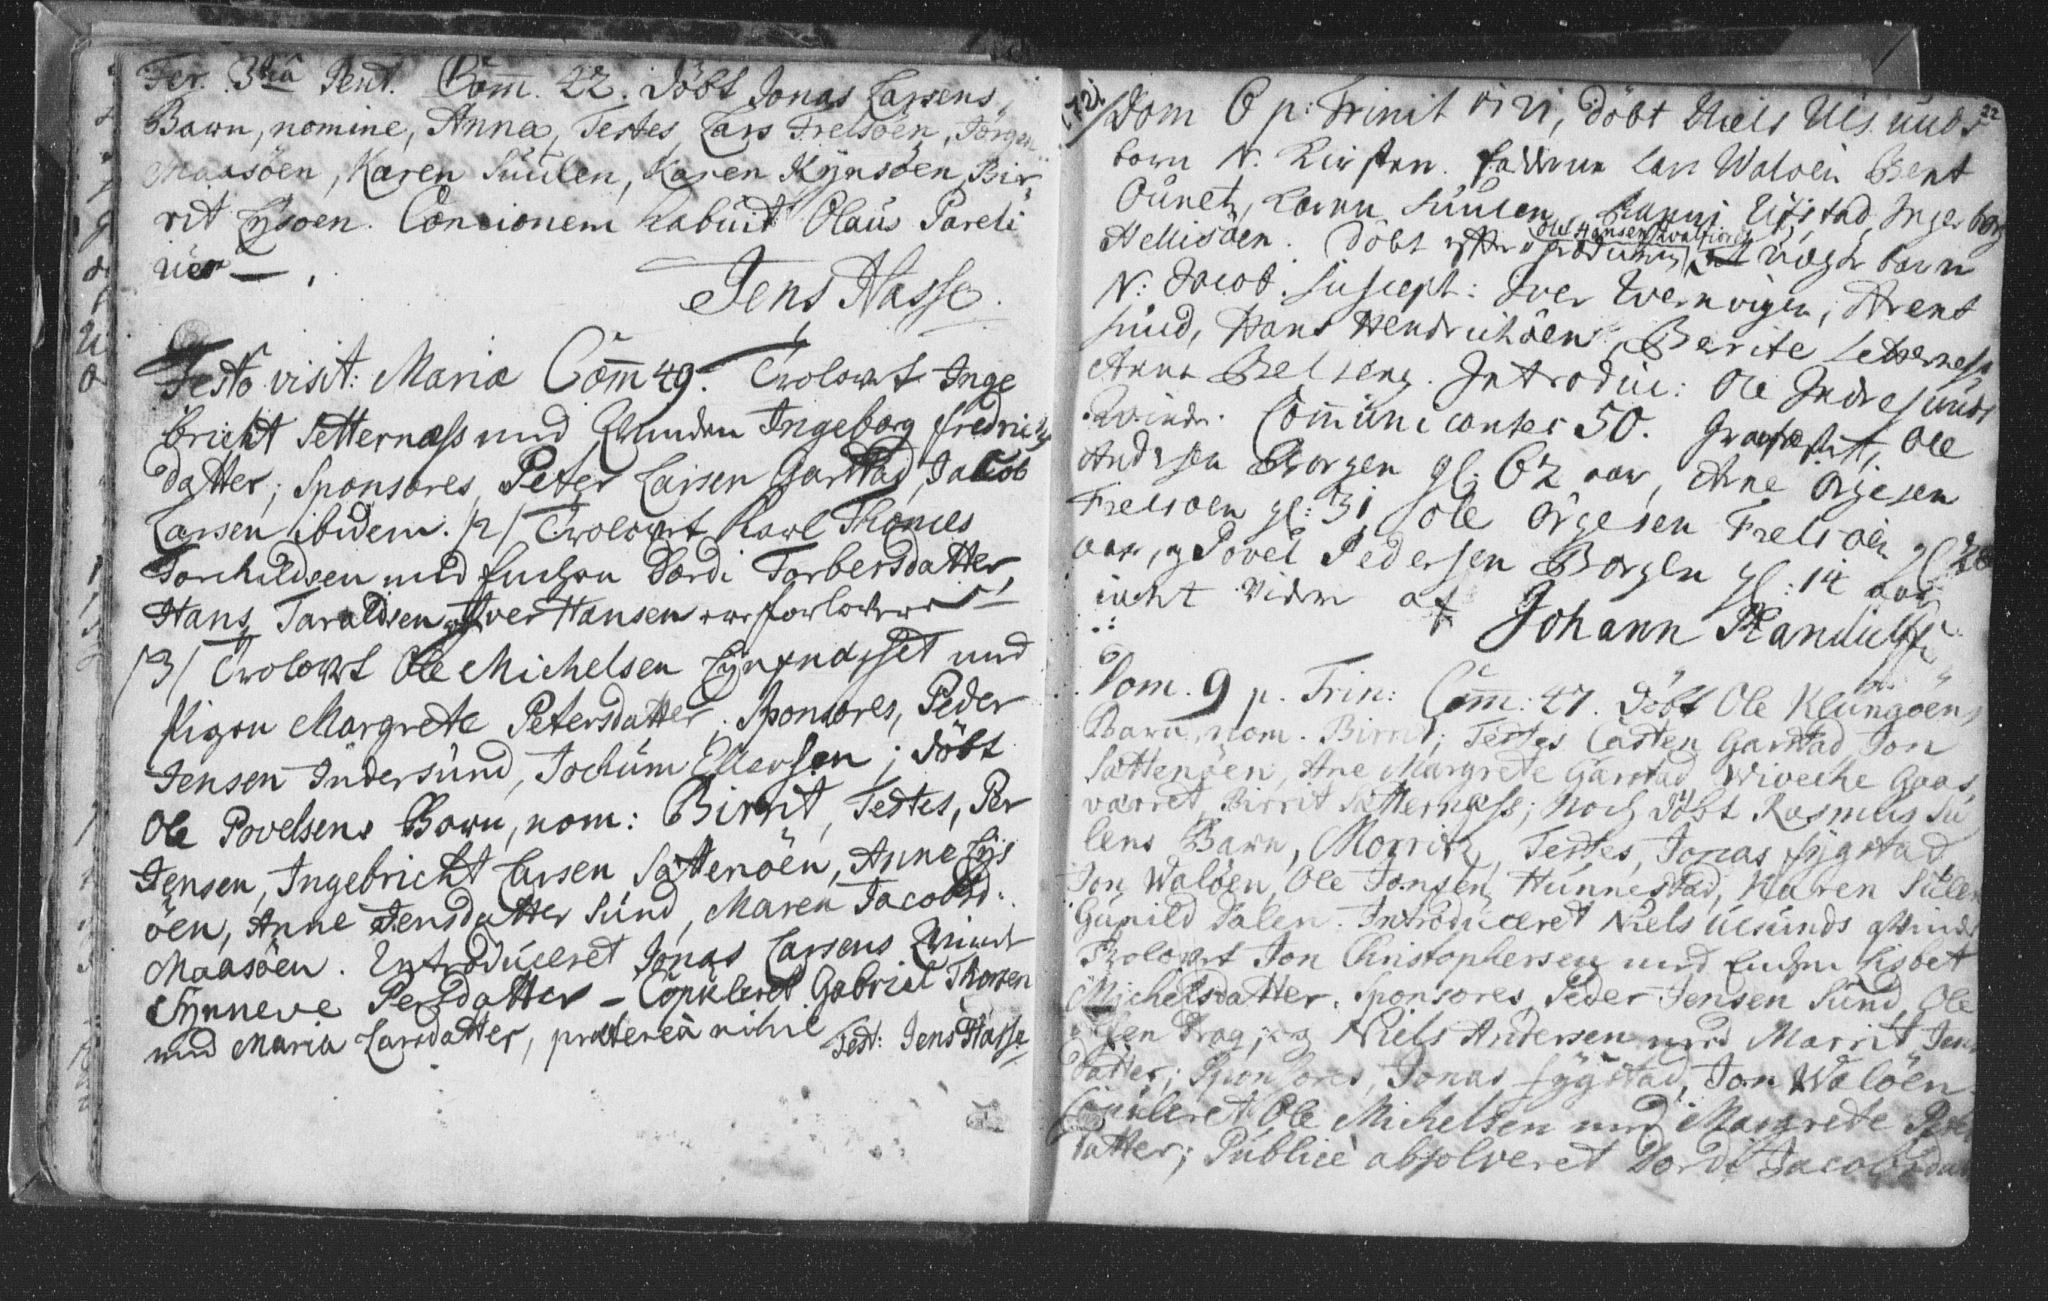 Fer. 3tiâ Pent. Com̄. 42. Döbt Jonas Larsens
Barn, nomine, Anna, Testes, Lars Frelsöen, Jörgen
Maasöen, Karen Suulen, Karen Kynsöen, Bir,
rit Lysoen. Concionem habuit Olaus Pareli
üs — .
Jens Hasse.
Festo visit: Mariæ Com̄ 49. Trolovet Inge
bricht Setternæss med Quinden Ingeborg Fredrichs
datter; Sponsores, Peter Larsen Garstad, Jacob
Larsen ibidem. /2/ Trolovet Karl Thomes
Torchildsen med Enchen Dordi Torbersdatter,
Hans Taraldsen og Iver Hansen ere forlovere
/3/ Trolovet Ole Michelsen Lynghaysset med
Pigen Margrete Petersdatter. Sponsores, Peder
Jensen Indersund, Jochum Ellersen; döbt
Ole Povelsens Barn, nom: Birrit, Testes, Per
Jensen, Ingebricht Larsen Sætternöen, Anne Lys
öen, Anne Jensdatter Sund, Maren Jacobsd:
Maasöen. Introduceret Jonas Larsens Quinde
Synneve Persdatter – Copuleret Gabriel Thorsen
med Maria Larsdatter, prætereà nihil
Test: Jens Hasse
1721
22
Dom 6 p: Trinit 1721, döbt Niels Ulsunds
barn N. Kirsten. Faddere Lars Waloen Bent
Ouneth, Karen Suulen, Ingeborg
Hellisöen. Döbt
Ole Hansen Kvalfiord
uægte barn
N: Jacob. Suscept: Iver Qvernvigen, Arent
Sund, Hans Hendrichöen, Berite Setterness
Anne Belseng. Introduc: Ole Indresunds
Qvinde. Communicantes 50. Ole
Andersen Borgen gl: 62 aar, Arne Örgesen
Frelsöen gl: 31, Ole Örgesen Frelsöen gl
aar, og Povel Pedersen Borgen gl: 14 aar
icket videre af
Johann Randulff
Dom. 9 p. Trin: Com̄: 47. Döbt Ole Klungöens
Barn, nom. Birrit; Testes Casten Garstad, Jon
Sættenöen, Ane Margrete Garstad, Wiveche Gaas
værret, Birrit Sætternæss; noch döbt Rasmus Su
lens Barn, Morritz, Testes, Jonas Sygstad,
Jon Waløen, Ole Jonsen Hunnestad, Karen Sulen
Gunild Dalen. Introduceret Niels Ulsunds qvinde
Trolovet Jon Christophersen med Enchen Lisbet
Michelsdatter. Sponsores Peder Jensen Sund, Ole
Olsen Drag; og Niels Andersen med Marrit Jens
datter; Sponsores, Jonas Sygstad, Jon Waløen.
Copuleret Ole Michelsen med Margrete Peters
datter; Publicè absolveret Dordi Jacobsdat